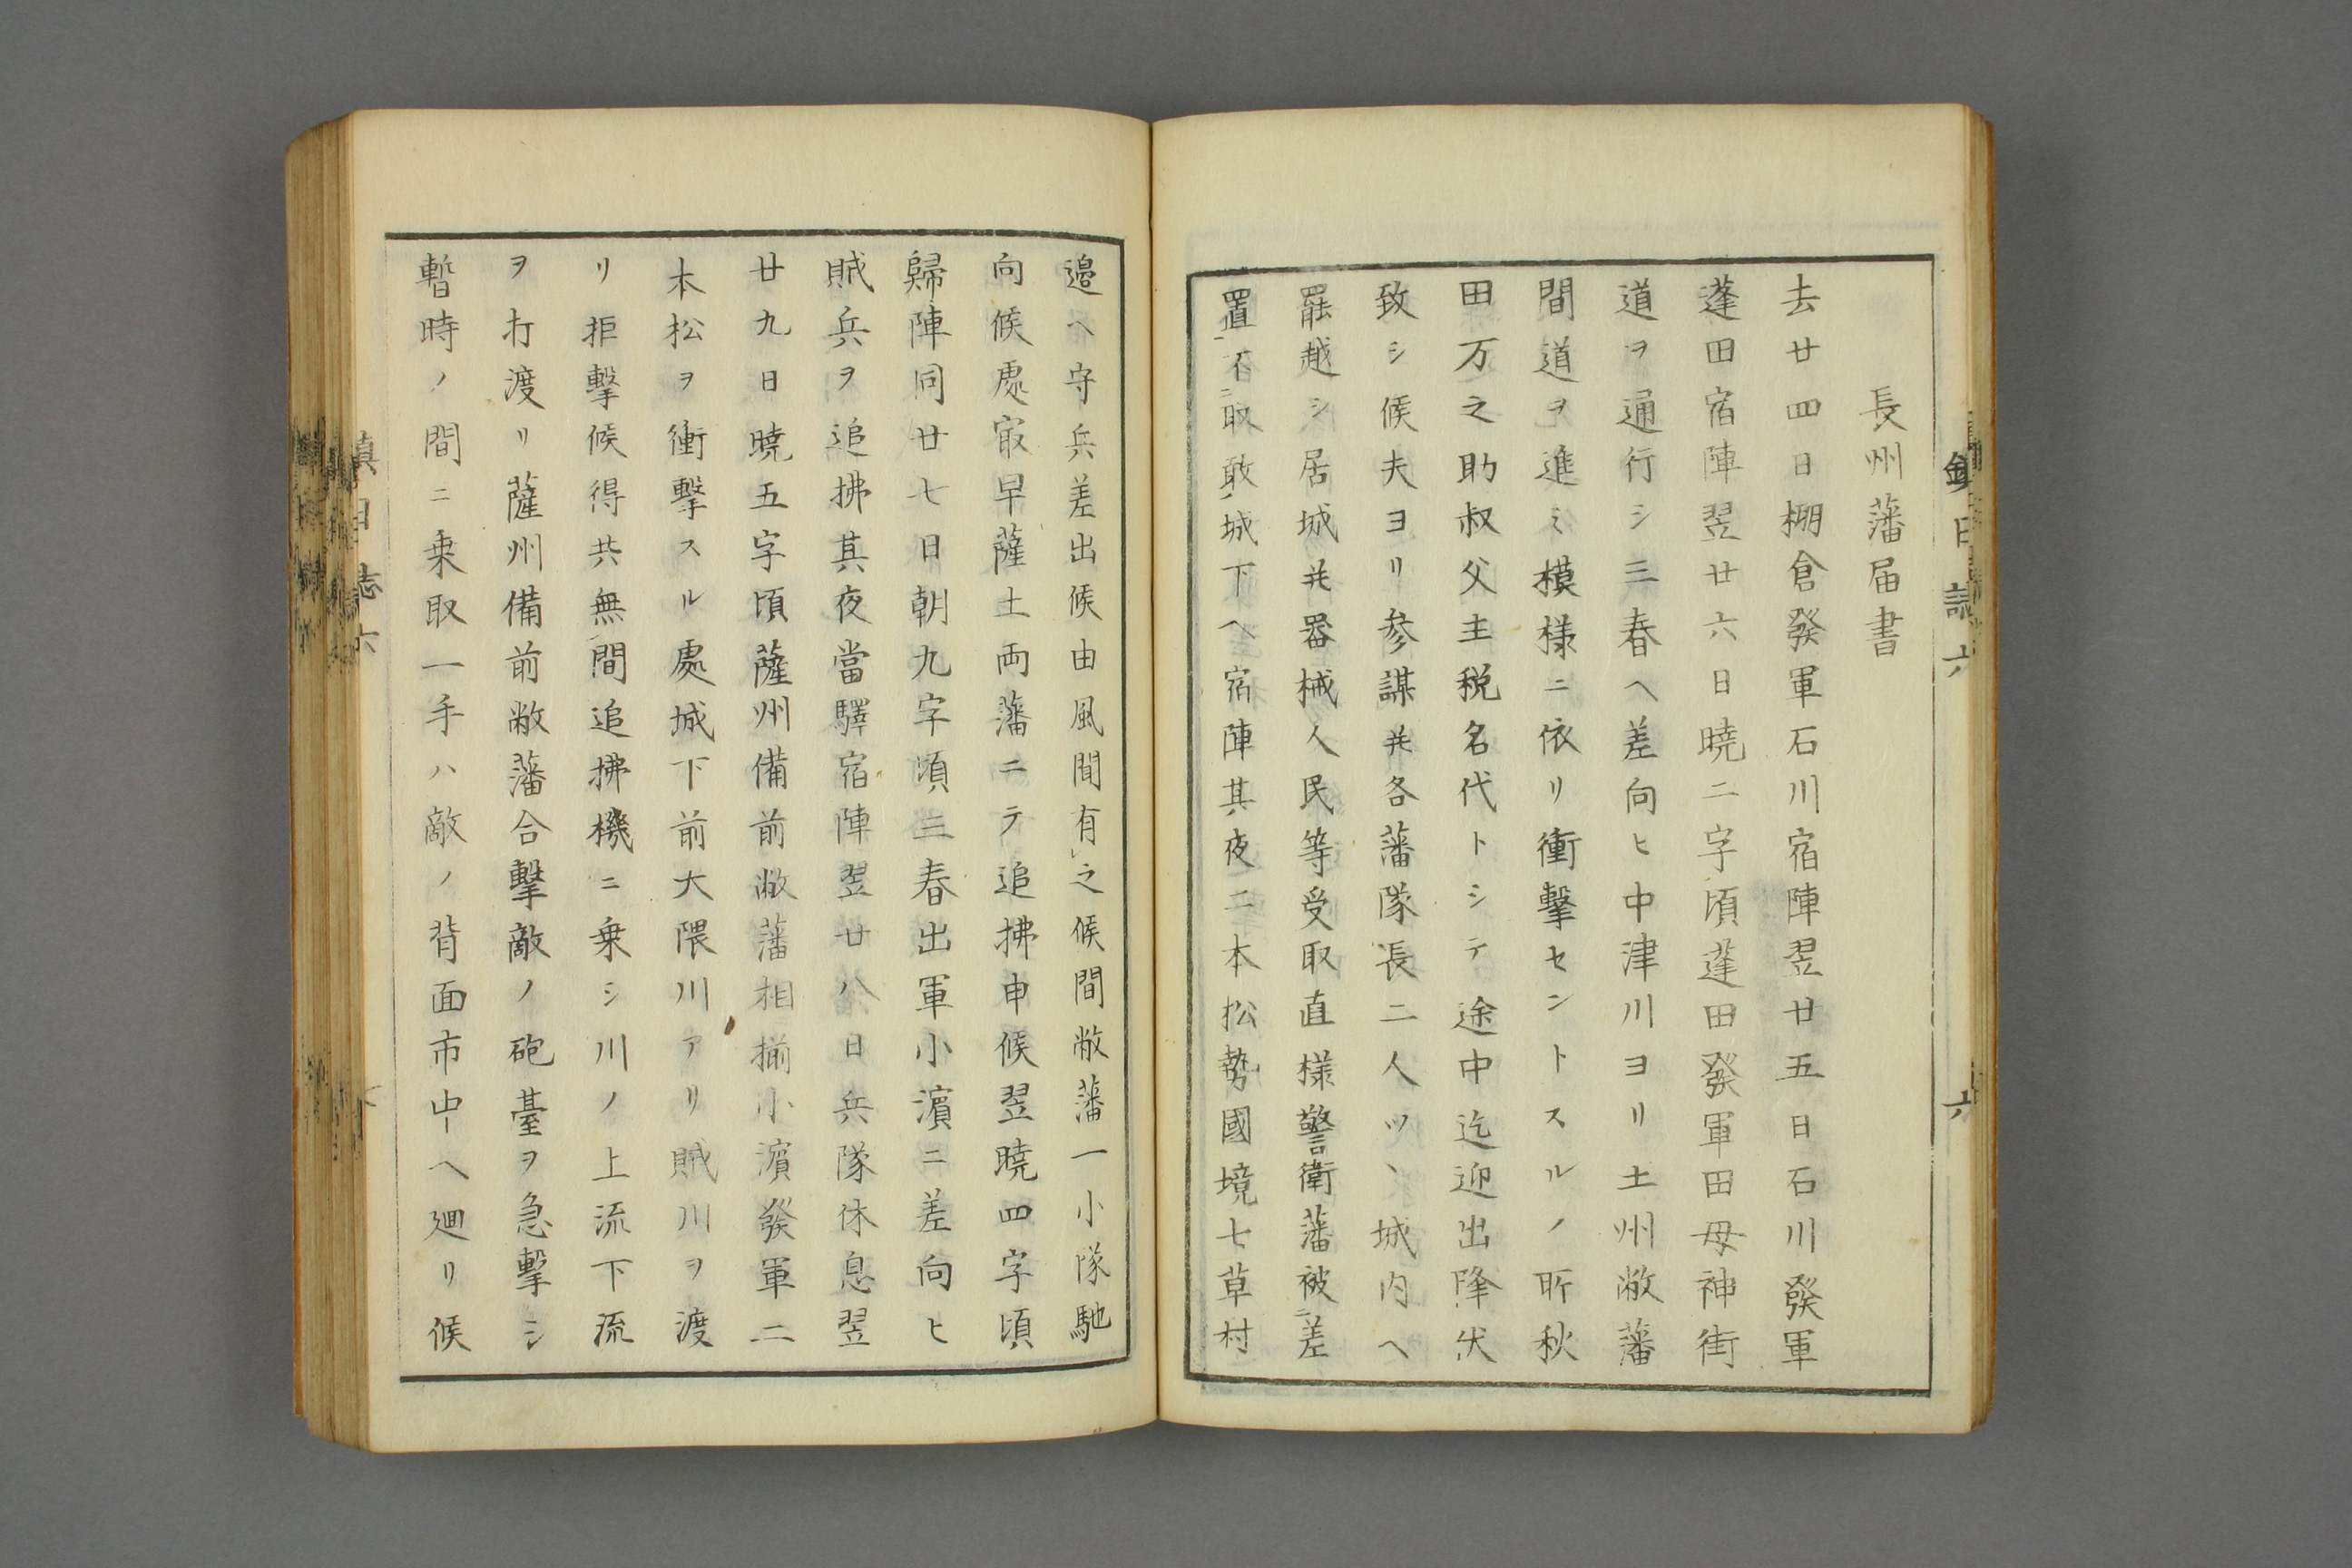 鎮日誌六
六
長州藩届書
去廿四日棚倉發軍石川宿陣翌廿五日石川發軍
蓬田宿陣翌廿六日曉二字頃蓬田發軍田母神街
道ヲ通行シ三春ヘ差向ヒ中津川ヨリ土州敝藩
間道ヲ進ミ模様ニ依リ衝擊セントスルノ所秋
田万之助叔父主税名代トシテ途中迄迎出降伏
致シ候夫ヨリ参謀幷各藩隊長二人ツヽ城内ヘ
罷越シ居城幷器械人民等受取直様警衛藩被ニ差
置一不ニ取敢ノ城下ヘ宿陣其夜二本松勢國境七草村
邉ヘ守兵差出候由風聞有レ之候間敝藩一小隊馳
向候處㝡早薩土両藩ニテ追拂申候翌曉四字頃
歸陣同廿七日朝九字頃三春出軍小濵ニ差向ヒ
賊兵ヲ追拂其夜當驛宿陣翌廿八日兵隊休息翌
廿九日曉五字頃薩州備前敝藩相揃小濵發軍二
本松ヲ衝擊スル處城下前大隈川アリ賊川ヲ渡
リ拒擊候得共無ノ間追拂機ニ乗シ川ノ上流下流
ヲ打渡リ薩州備前敝藩合擊敵ノ砲臺ヲ急擊シ
暫時ノ間ニ乗取一手ハ敵ノ背面市中ヘ廻リ候
鎮日志六